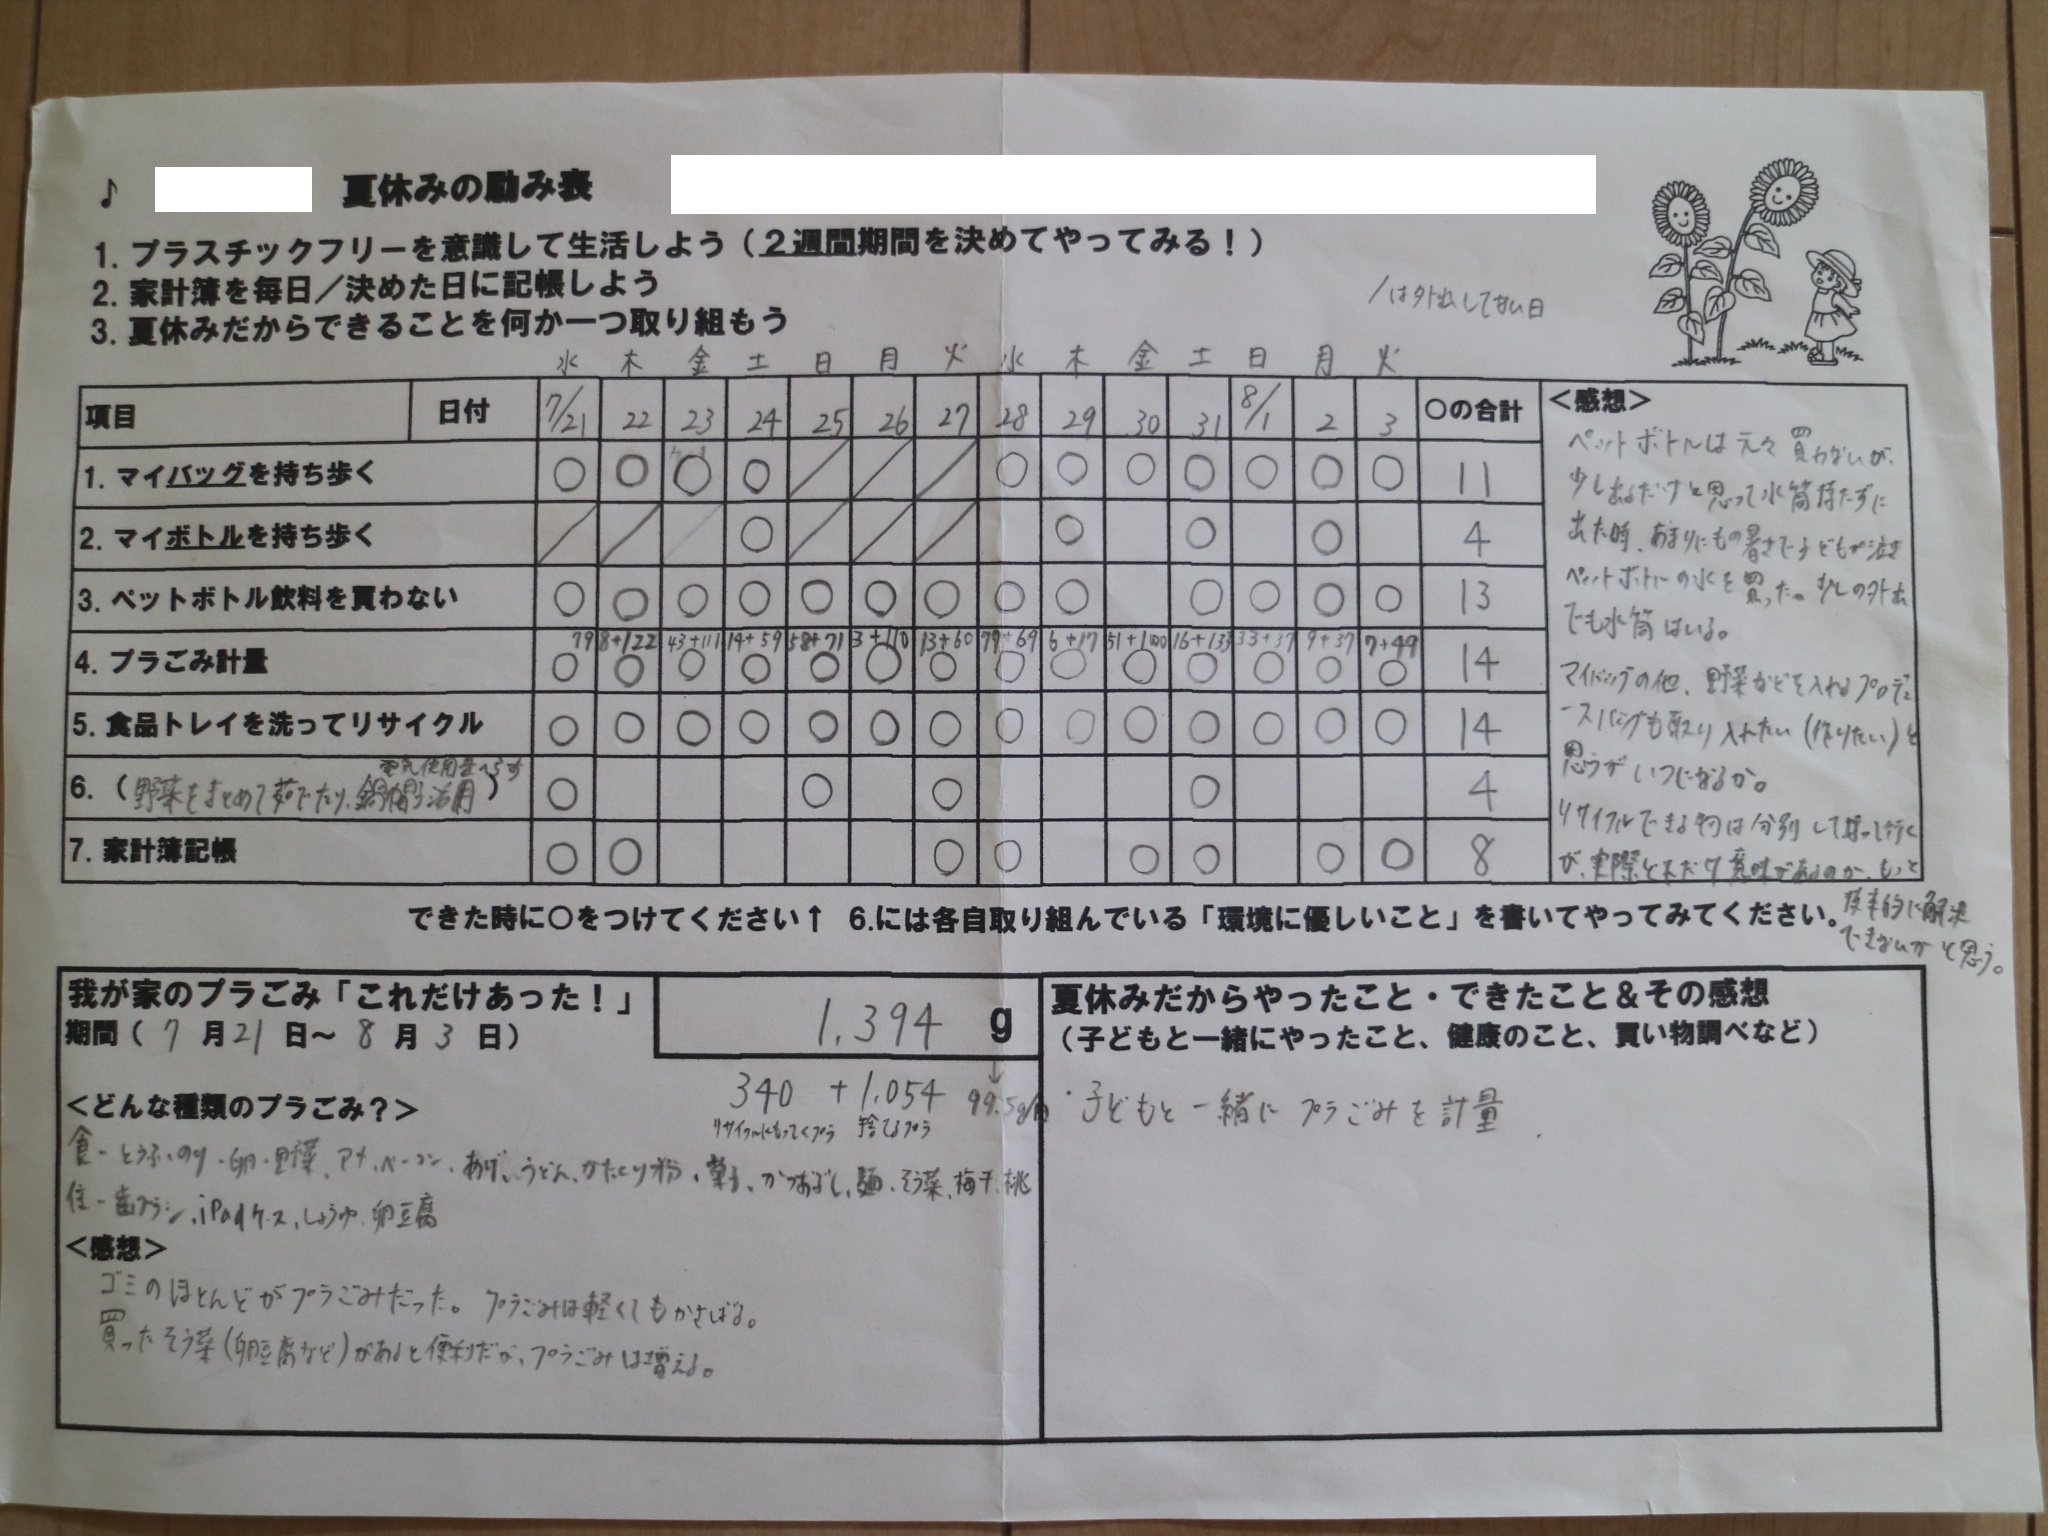 ♪ 夏休みの励み表
1. プラスチックフリーを意識して生活しよう（２週間期間を決めてやってみる！）
2. 家計簿を毎日／決めた日に記帳しよう
3. 夏休みだからできることを何か一つ取り組もう
/は外出してない日
水 木 金 土 日 月 火 水 木 金 土 日 月 火
項目 日付 7/21 22 23 24 25 26 27 28 29 30 31 8/1 2 3 ○の合計
1. マイバッグを持ち歩く ○ ○ ○ ○ / / / ○ ○ ○ ○ ○ ○ ○ 11
2. マイボトルを持ち歩く / / / ○ / / / ○ ○ ○ 4
3. ペットボトル飲料を買わない ○ ○ ○ ○ ○ ○ ○ ○ ○ ○ ○ ○ ○ 13
79 8+122 43+111 14+59 58+71 3+110 13+60 79+69 6+17 51+100 16+133 33+37 9+37 7+49
4. プラごみ計量 ○ ○ ○ ○ ○ ○ ○ ○ ○ ○ ○ ○ ○ ○ 14
5. 食品トレイを洗ってリサイクル ○ ○ ○ ○ ○ ○ ○ ○ ○ ○ ○ ○ ○ ○ 14
電気使用量へらす
6.（野菜をまとめて茹でたり、鍋帽子活用） ○ ○ ○ ○ 4
7. 家計簿記帳 ○ ○ ○ ○ ○ ○ ○ ○ 8
＜感想＞
ペットボトルは元々買わないが、
少し出るだけと思って水筒持たずに
出た時、あまりにもの暑さで子どもが泣き
ペットボトルの水を買った。少しの外出
でも水筒はいる。
マイバッグの他、野菜などを入れるプロデュ
ースバッグも取り入れたい（作りたい）と
思うがいつになるか。
リサイクルできる物は分別して持って行く
が、実際どれだけ意味があるのか、もっと
根本的に解決
できないかと思う。
できた時に○をつけてください↑ 6.には各自取り組んでいる「環境に優しいこと」を書いてやってみてください。
我が家のプラごみ「これだけあった！」
期間（ 7 月 21 日～ 8 月 3 日）
1,394 g
↓
340 + 1,054 99.5g/日
リサイクルにもってくプラ 捨てるプラ
＜どんな種類のプラごみ？＞
食－とうふ、のり、卵、野菜、アナ、ベーコン、あげ、うどん、かたくり粉、菓子、かつおぶし、麺、そう菜、梅干、桃
住－歯ブラシ、iPadケース、しょうゆ、卵豆腐
＜感想＞
ゴミのほとんどがプラごみだった。プラごみは軽くてもかさばる。
買ったそう菜（卵豆腐など）があると便利だが、プラごみは増える。
夏休みだからやったこと・できたこと＆その感想
（子どもと一緒にやったこと、健康のこと、買い物調べなど）
・子どもと一緒にプラごみを計量．